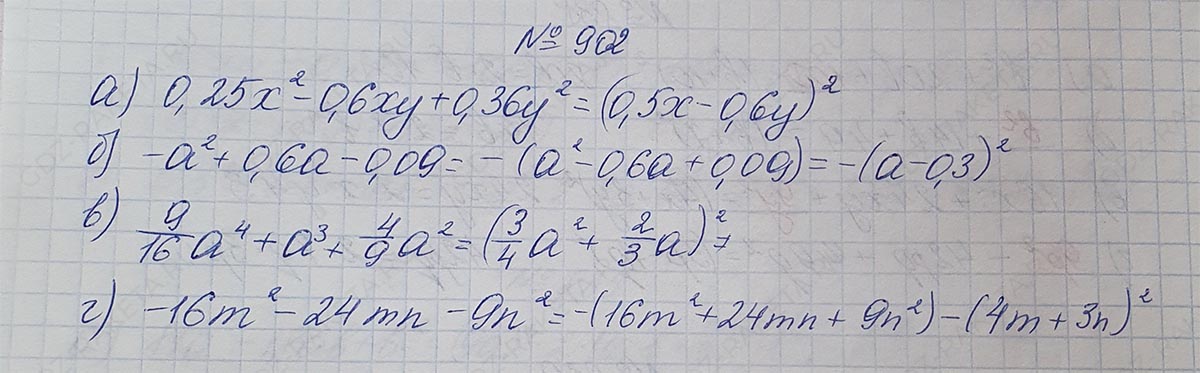 № 902
а) 0,25x² - 0,6xy + 0,36y² = (0,5x - 0,6y)²
б) -a² + 0,6a - 0,09 = - (a² - 0,6a + 0,09) = - (a - 0,3)²
в) 9/16 a⁴ + a³ + 4/9 a² = (3/4 a² + 2/3 a)² =
г) -16m² - 24mn - 9n² = -(16m² + 24mn + 9n²) - (4m + 3n)²